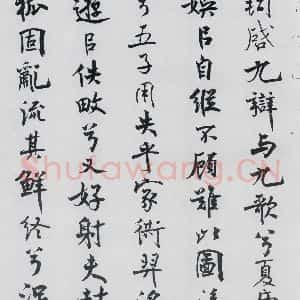 詞啓九辯与九歌兮夏康
娛㠯自縱不顧難以圖後
兮五子用失乎家衖羿淫
遊㠯佚畋兮又好射夫封
狐固亂流其鮮終兮浞
Shufawang.CN